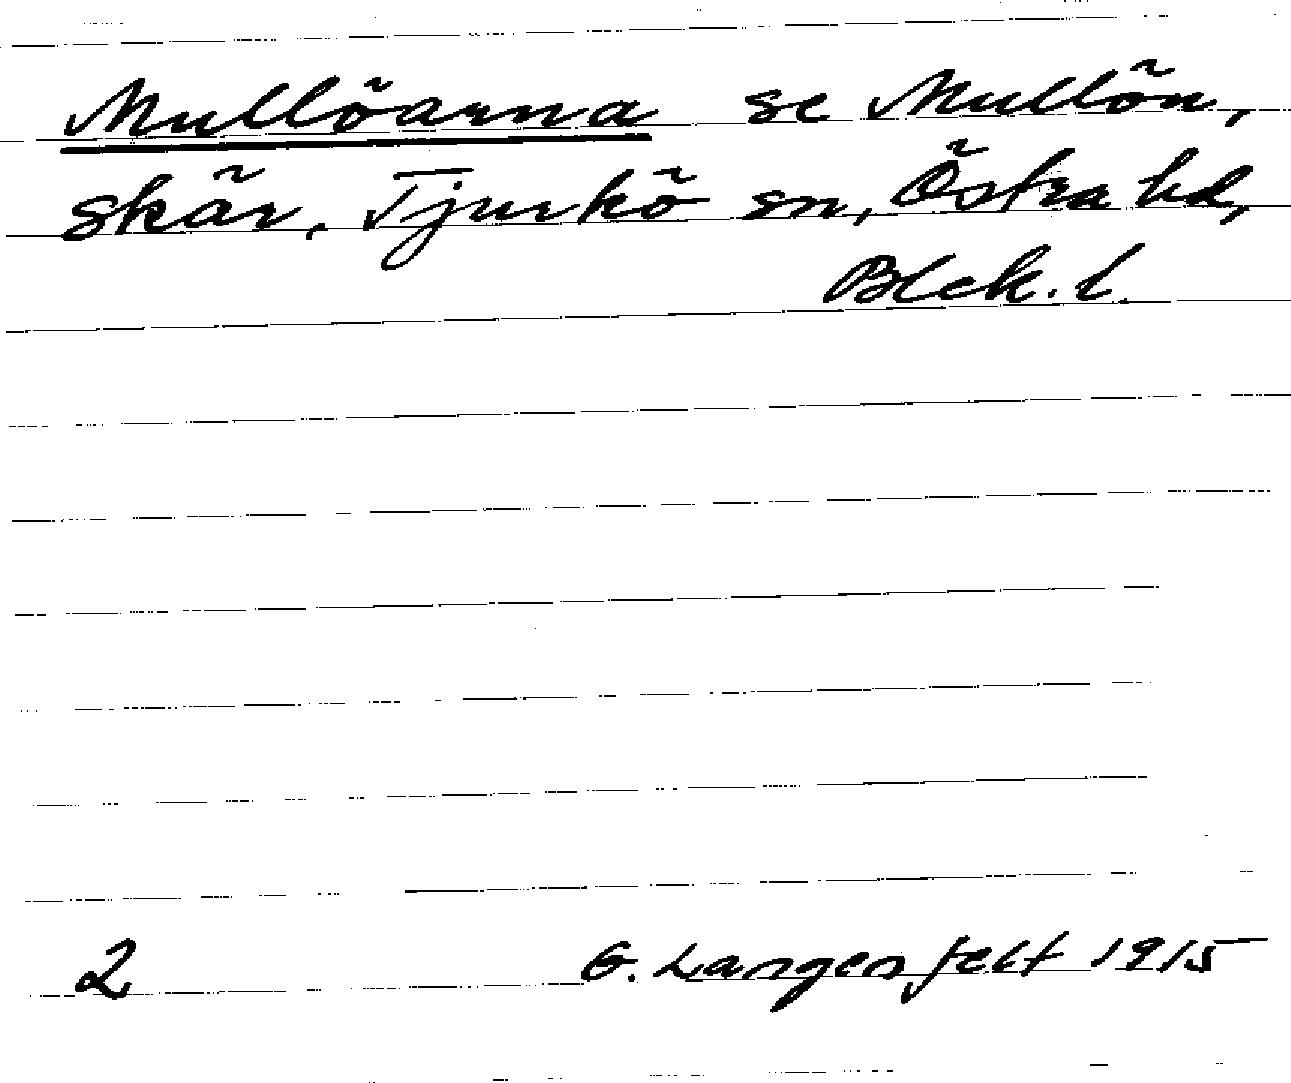 Mullöarna se Mullön,
skär, Tjurkö sn, Östra hd,
Blek. l.
2 G. Langenfelt 1915